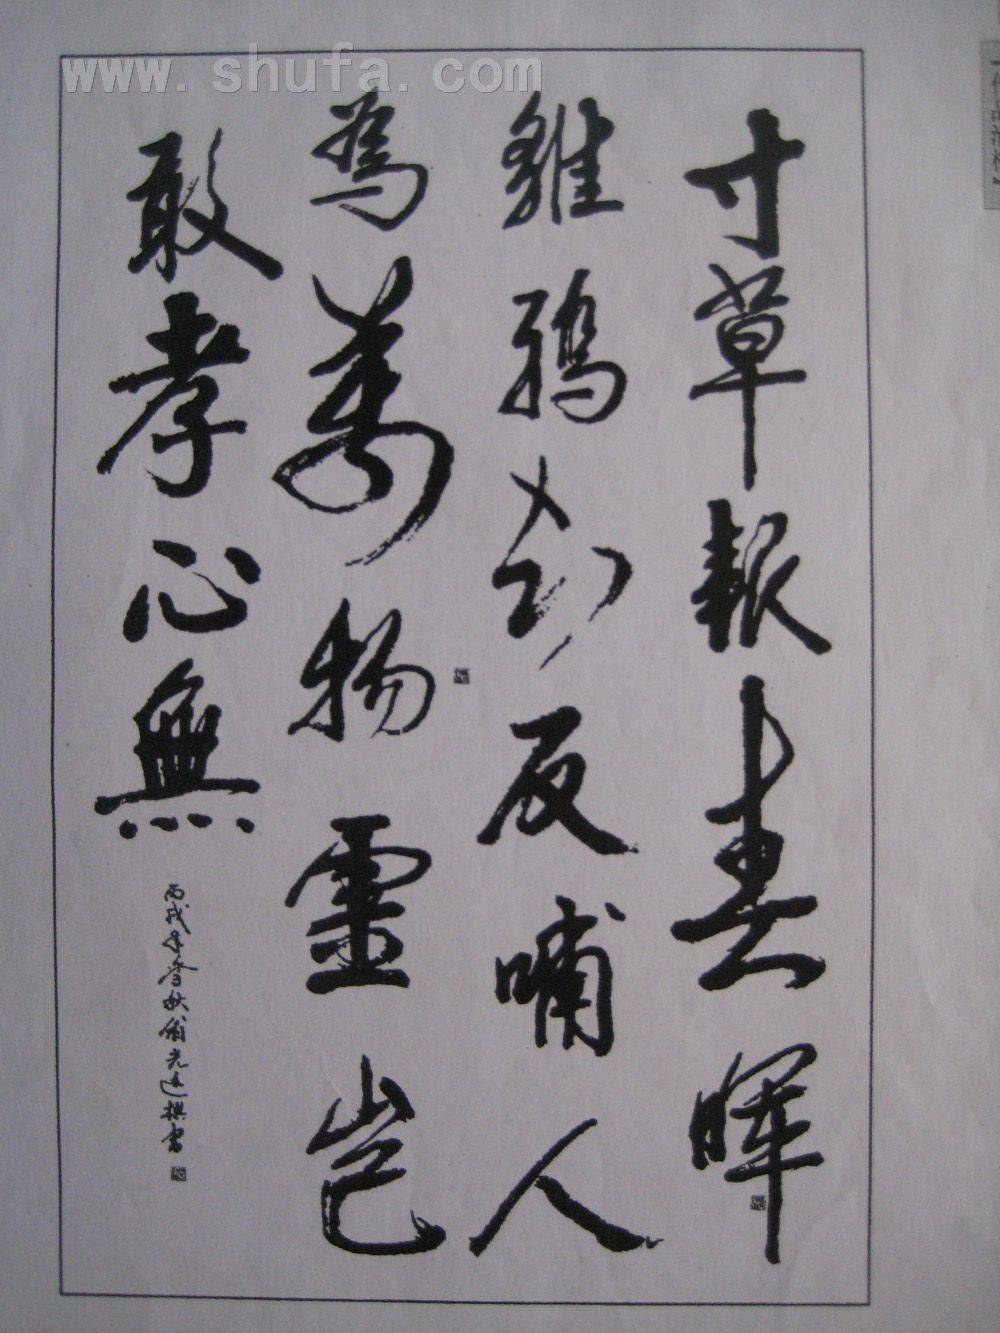 www.shufa.com
寸草報春暉
雛鴉知反哺人
為萬物靈豈
敢孝心無
丙戌年暮秋翁光逵撰書